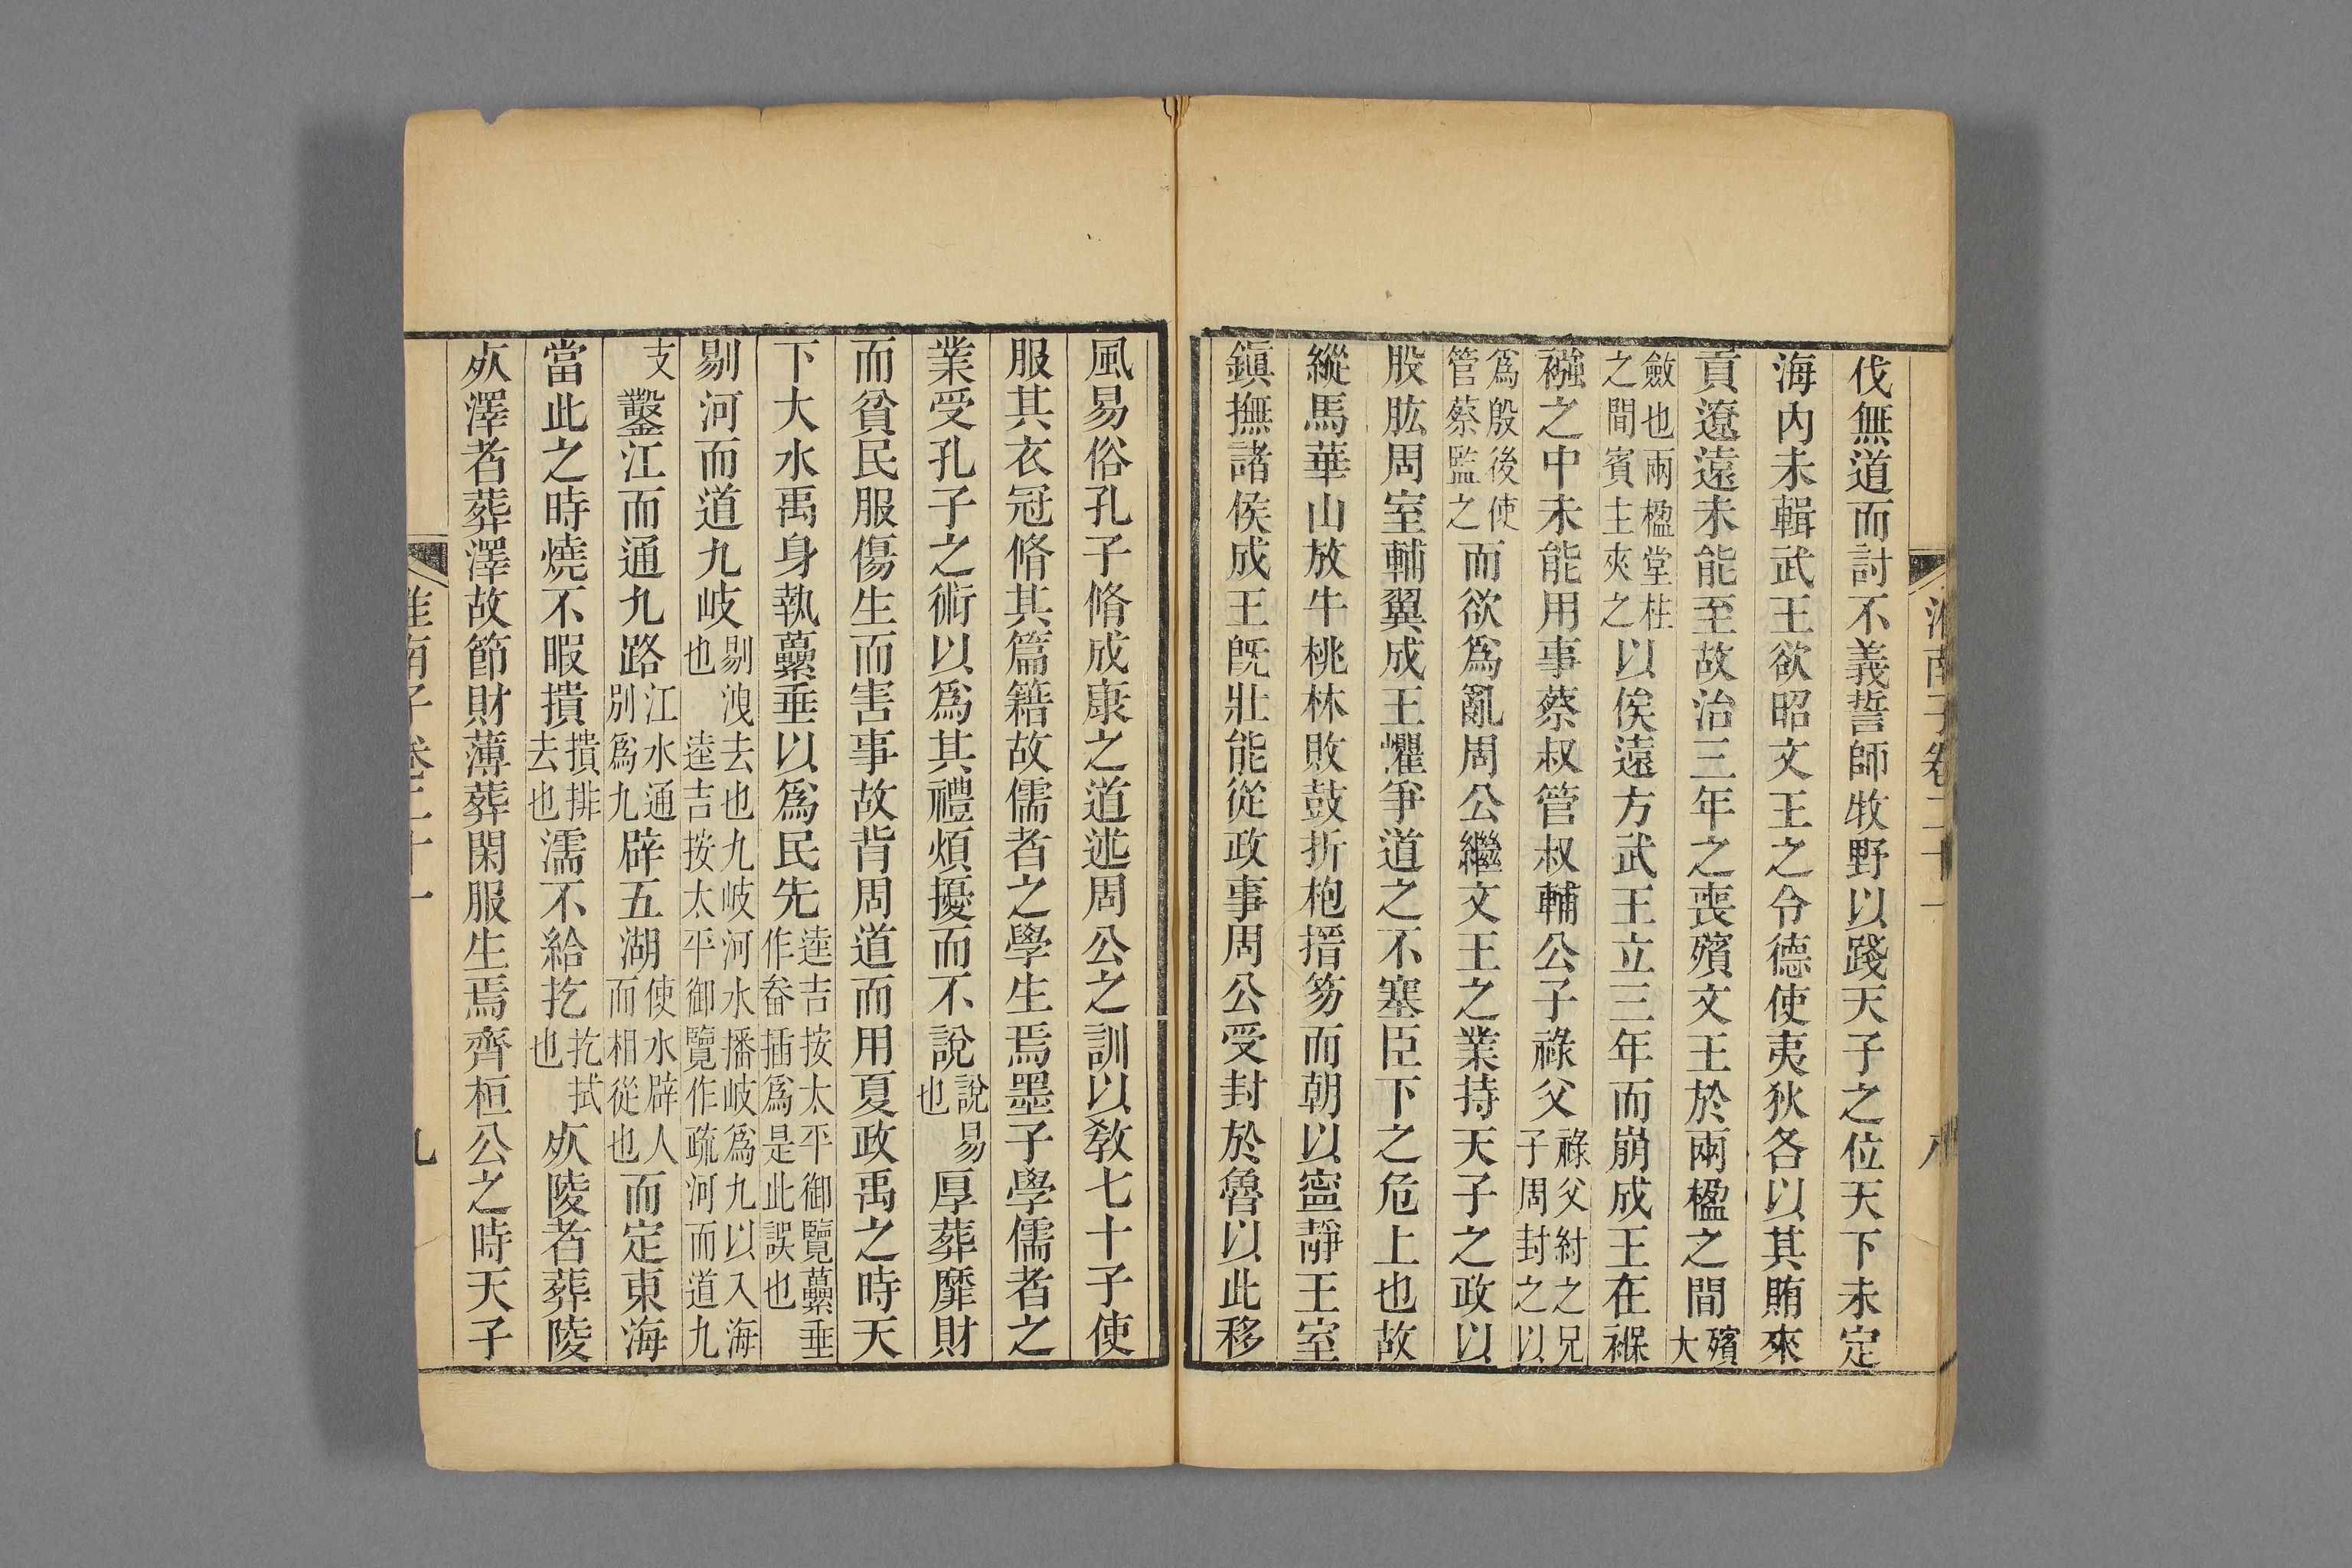 淮南子卷二十一 八
伐無道而討不義誓師牧野以踐天子之位天下未定
海內未輯武王欲昭文王之令德使夷狄各以其賄來
貢遼遠未能至故治三年之喪殯文王於兩楹之間殯大
斂也兩楹堂柱之間賓主夾之以俟遠方武王立三年而崩成王在褓
襁之中未能用事蔡叔管叔輔公子祿父祿父紂之兄子周封之以
爲殷後使管蔡監之而欲爲亂周公繼文王之業持天子之政以
股肱周室輔翼成王懼爭道之不塞臣下之危上也故
縱馬華山放牛桃林敗鼓折枹搢笏而朝以寧靜王室
鎭撫諸侯成王旣壯能從政事周公受封於魯以此移
風易俗孔子脩成康之道述周公之訓以敎七十子使
服其衣冠脩其篇籍故儒者之學生焉墨子學儒者之
業受孔子之術以爲其禮煩擾而不說說易也厚葬靡財
而貧民服傷生而害事故背周道而用夏政禹之時天
下大水禹身執虆垂以爲民先逵吉按太平御覽虆垂作畚插爲是此誤也
剔河而道九岐剔洩去也九岐河水播岐爲九以入海也逵吉按太平御覽作疏河而道九
支鑿江而通九路江水通別爲九辟五湖使水辟人而相從也而定東海
當此之時燒不暇撌撌排去也濡不給扢扢拭也㱙陵者葬陵
㱙澤者葬澤故節財薄葬閑服生焉齊桓公之時天子
淮南子卷二十一 九